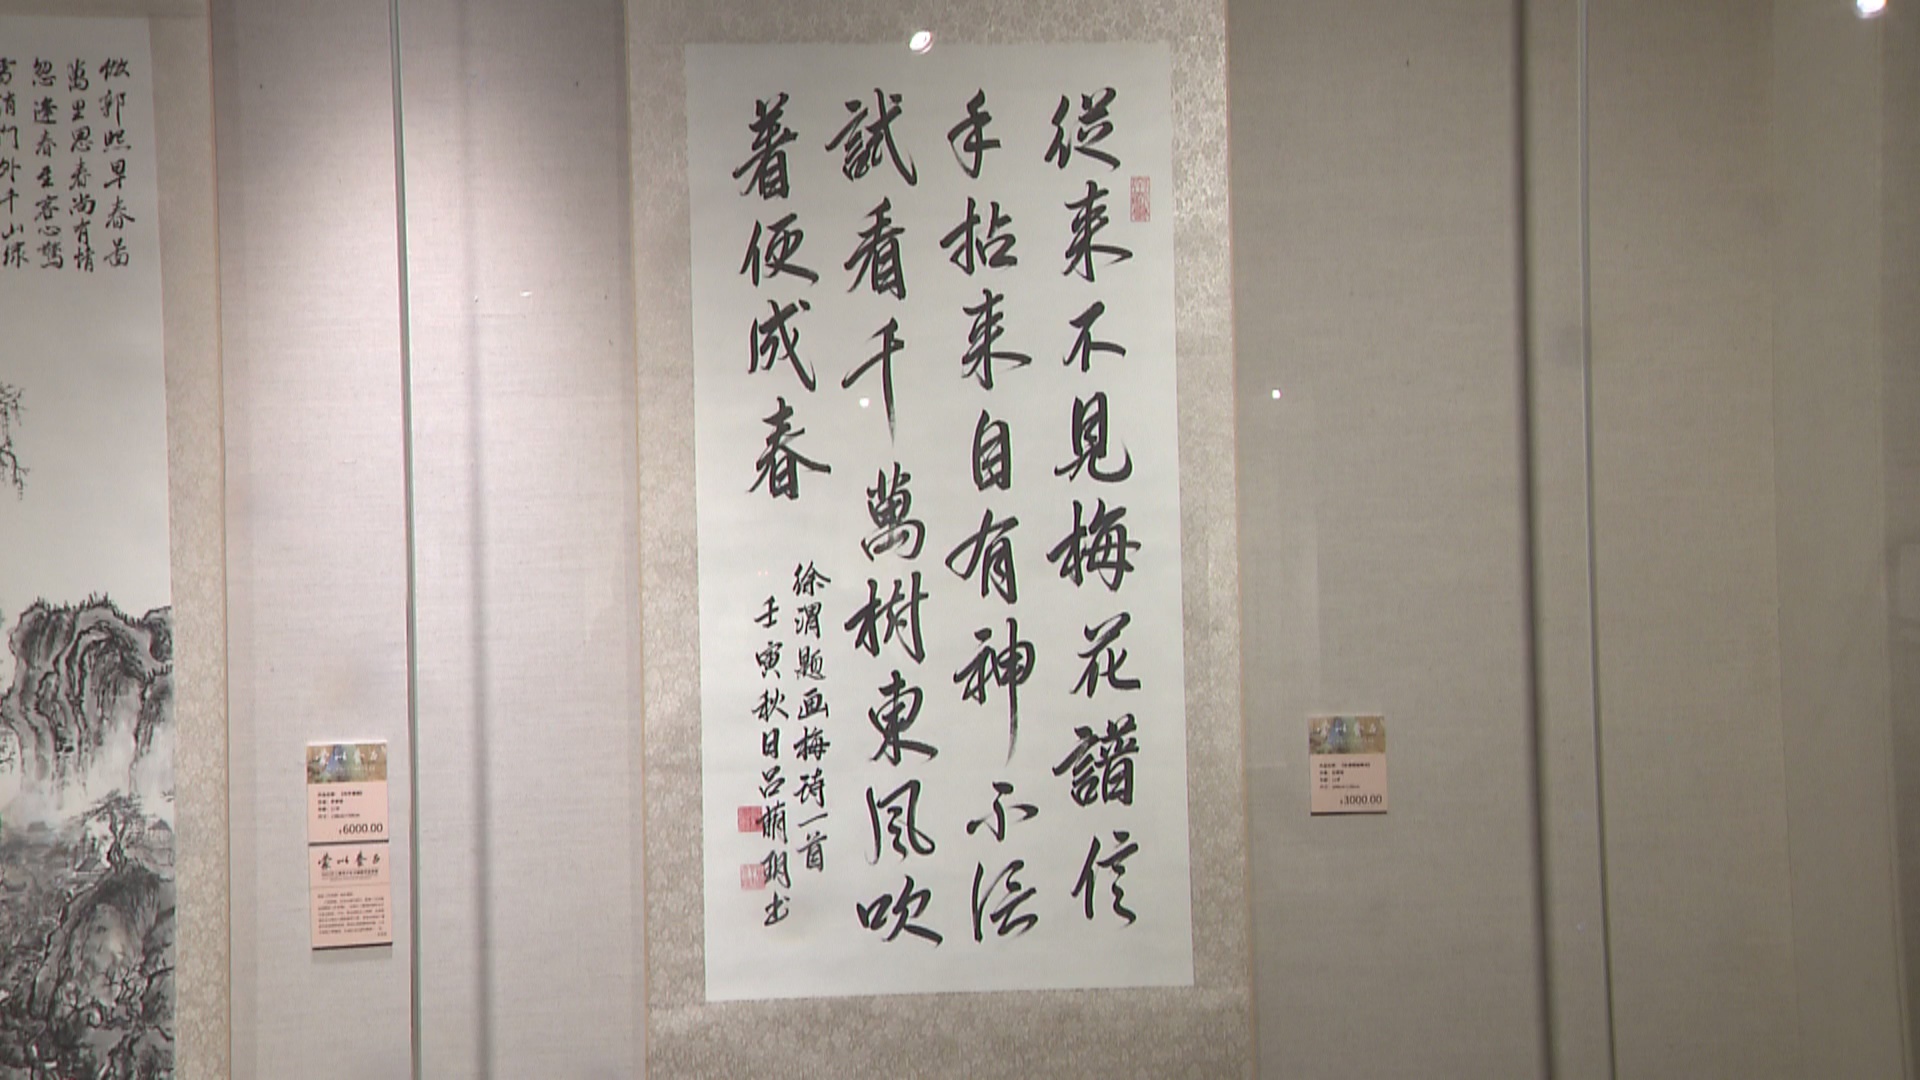 從来不見梅花譜信
手拈来自有神不信
試看千萬樹東風吹
着便成春
徐渭题画梅诗一首
壬寅秋日吕萌明书
做郭熙早春啚
萬里思春尚有情
忽逢春至客心驚
雪消门外千山绿
¥6000.00
¥3000.00